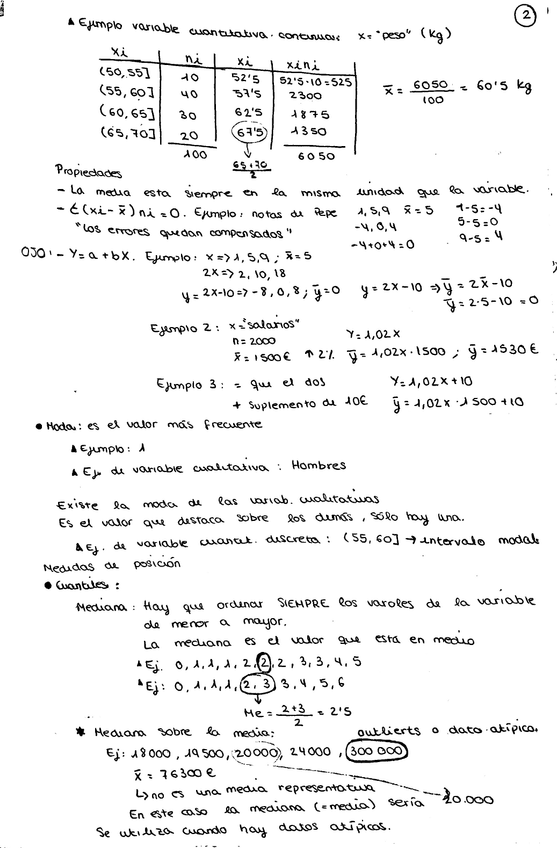 2
▲ Ejemplo variable cuantitativa continua: x = "peso" (kg)
xi | ni | xi | xini
(50, 55] | 10 | 52'5 | 52'5·10 = 525
(55, 60] | 40 | 57'5 | 2300
(60, 65] | 30 | 62'5 | 1875
(65, 70] | 20 | 67'5 | 1350
100 | 6050
x̄ = 6050/100 = 60'5 kg
65+70/2
Propiedades
- La media esta siempre en la misma unidad que la variable.
- Σ(xi - x̄) ni = 0. Ejemplo: notas de Pepe 1, 5, 9 x̄ = 5 1-5 = -4
"Los errores quedan compensados" -4, 0, 4 5-5 = 0
-4+0+4 = 0 9-5 = 4
OJO! - Y = a + bX. Ejemplo: x => 1, 5, 9; x̄ = 5
2x => 2, 10, 18
y = 2x-10 => -8, 0, 8; ȳ = 0 y = 2x - 10 => ȳ = 2x̄ - 10
ȳ = 2·5 - 10 = 0
Ejemplo 2: x = "salarios" Y = 1,02x
n = 2000
x̄ = 1500 € ↑ 2% ȳ = 1,02x · 1500; ȳ = 1530 €
Ejemplo 3: = que el dos Y = 1,02x + 10
+ suplemento de 10€ ȳ = 1,02x · 1500 + 10
● Moda: es el valor más frecuente
▲ Ejemplo: 1
▲ Ej. de variable cualitativa: Hombres
Existe la moda de las variab. cualitativas
Es el valor que destaca sobre los demás, sólo hay una.
▲ Ej. de variable cuantit. discreta: (55, 60] → intervalo modal
Medidas de posición
● Cuantiles:
Mediana: Hay que ordenar SIEMPRE los varoles de la variable
de menor a mayor.
La mediana es el valor que está en medio
▲ Ej. 0, 1, 1, 1, 2, 2, 2, 3, 3, 4, 5
▲ Ej: 0, 1, 1, 1, 2, 3, 3, 4, 5, 6
Me = 2+3/2 = 2'5
* Mediana sobre la media: outlierts o dato atípico.
Ej: 18000, 19500, 20000, 24000, 300 000
x̄ = 76300 €
↳ no es una media representativa
En este caso la mediana (=media) sería 20.000
Se utiliza cuando hay datos atípicos.